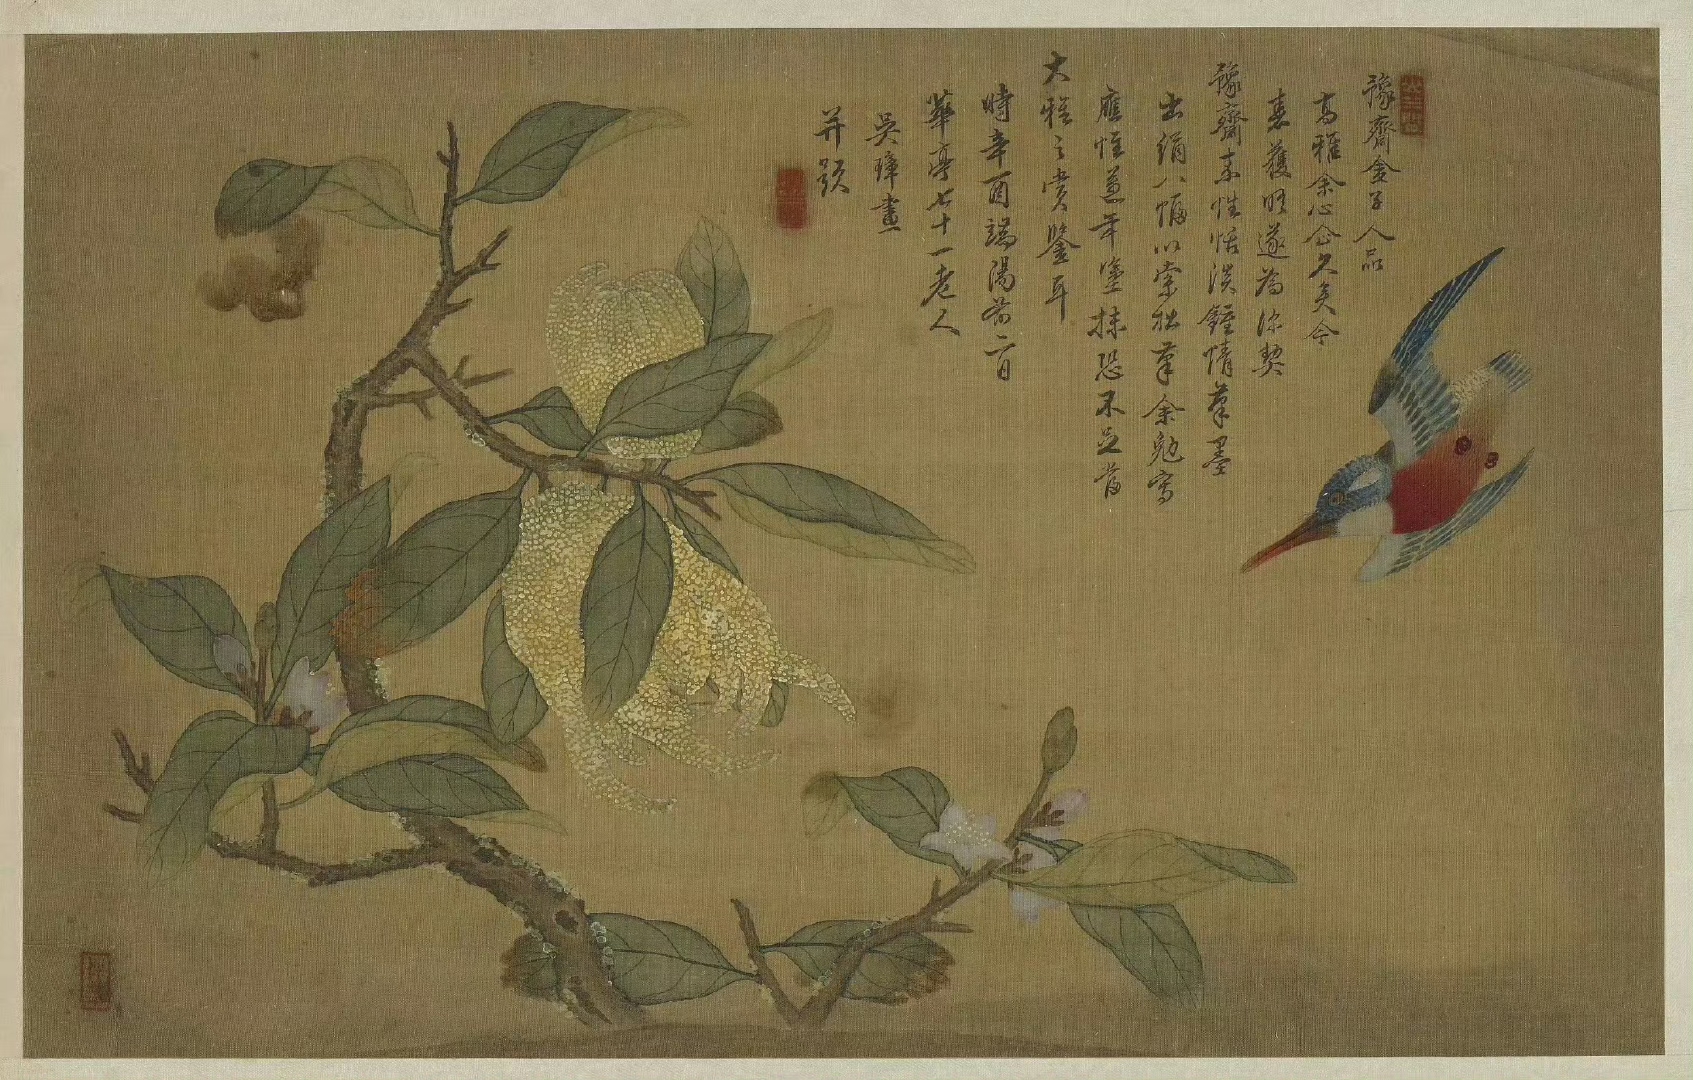 豫齋金子人品
高雅余心企久矣今
喜獲晤遂為深契
豫齋素性恬淡鍾情筆墨
出絹八幅以索拙筆余勉寫
應惟蒼年塗抹恐不足當
大雅之賞鑒耳
時辛酉端陽前二日
華亭七十一老人
吳璋畫
并題